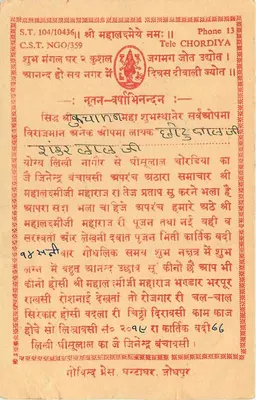 S.T. 104/10436
॥ श्री महालक्ष्मये नमः ॥
Phone 13
C.S.T. NGO/359
Tele CHORDIYA
शुभ मंगल घर २ कुशल
जगमग जोत उद्योत ।
आनन्द हो सब नगर में
दिवस दिवाली ज्योत ॥
नूतन-वर्षाभिनन्दन :
सिद्ध श्री कुचामण महा शुभस्थानेर सर्वओपमा
विराजमान अनेक ओपमा लायक छोटुलालजी
शंकरलालजी
योग्य लिखी नागौर से घीसूलाल चोरडिया का
जै जिनेन्द्र बंचावसी अपरंच अठारा समाचार श्री
महालक्ष्मीजी महाराज रा तेज प्रताप सू करने भला है
आपरा सदा भला चाहेजे अपरंच ओपमा अठे श्री
महालक्ष्मीजी महाराज री पूजन तथा नई बही व
सरस्वती और लेखनी दवात पूजन मिती कार्तिक बदी
१४ वार गोधलिक समय शुभ नक्षत्र में शुभ
लग्न में बहुत आनन्द उछाव सू कीनो है आप भी
कीनो होसी श्री महालक्ष्मीजी महाराज भण्डार भरपूर
रावसी रोशनाई देखतां तो रोजगार री चल-चाल
सिरकार होसी बदला री चिट्ठी दिरावसी काम काज
होवे सो लिखावसी सं० २०१९ रा कार्तिक बदी
लिखी घीसूलाल का जै जिनेन्द्र बंचावसी ।
गोविन्द प्रेस, घन्टाघर, जोधपुर